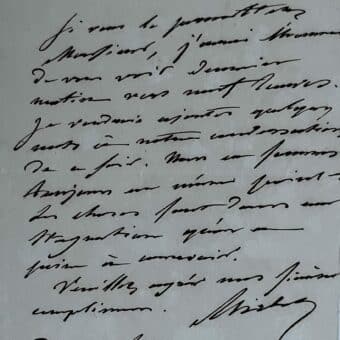 Si vous le permettez
Monsieur, j'aurai l'honneur
de vous voir demain
matin vers neuf heures.
Je voudrais ajouter quelques
mots à notre conversation
de ce soir. Nous en sommes
toujours au même point
les choses sont dans une
stagnation qu'on a
peine à concevoir.
Veuillez agréer mes sincères
compliments.